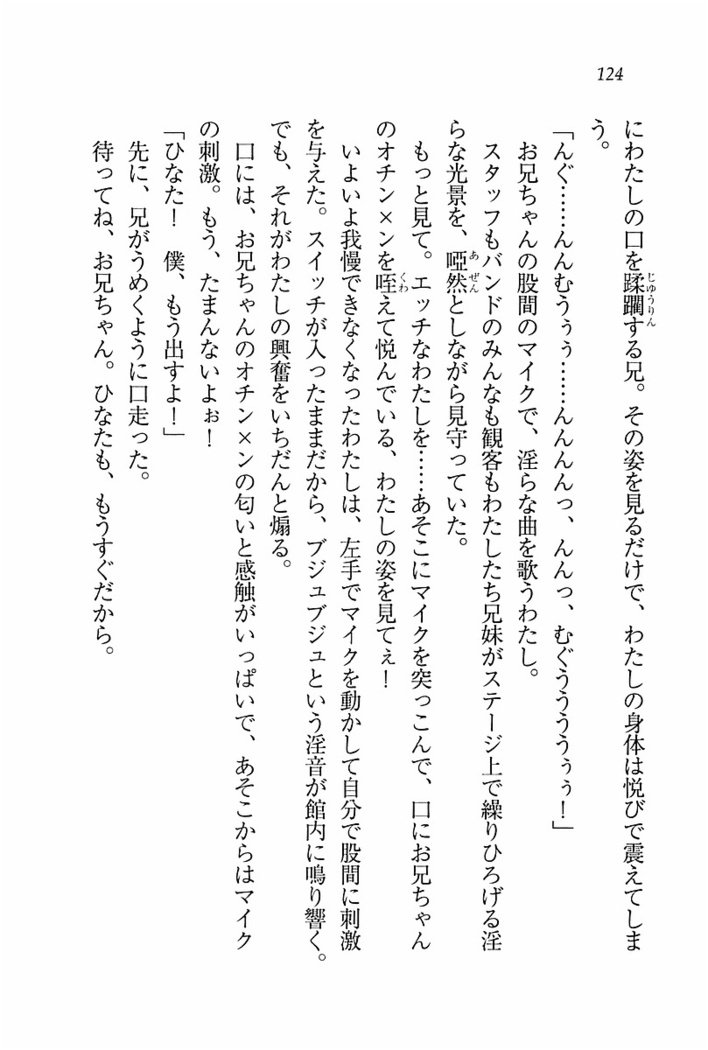 124
にわたしの口を蹂躙する兄。その姿を見るだけで、わたしの身体は悦びで震えてしま
う。
「んぐ……んんむうぅぅ……んんんんっ、んんっ、むぐうううぅぅ！」
お兄ちゃんの股間のマイクで、淫らな曲を歌うわたし。
スタッフもバンドのみんなも観客もわたしたち兄妹がステージ上で繰りひろげる淫
らな光景を、啞然としながら見守っていた。
もっと見て。エッチなわたしを……あそこにマイクを突っこんで、口にお兄ちゃん
のオチン×ンを咥えて悦んでいる、わたしの姿を見てぇ！
いよいよ我慢できなくなったわたしは、左手でマイクを動かして自分で股間に刺激
を与えた。スイッチが入ったままだから、ブジュブジュという淫音が館内に鳴り響く。
でも、それがわたしの興奮をいちだんと煽る。
口には、お兄ちゃんのオチン×ンの匂いと感触がいっぱいで、あそこからはマイク
の刺激。もう、たまんないよぉ！
「ひなた！　僕、もう出すよ！」
先に、兄がうめくように口走った。
待ってね、お兄ちゃん。ひなたも、もうすぐだから。